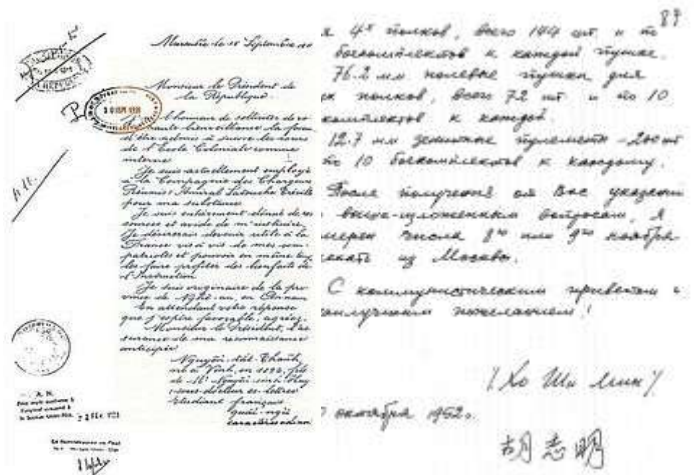 Marseille le 15 Septembre 191
Monsieur le Président de
la République
l'honneur de solliciter de vo
haute bienveillance la faveur
d'être admis à suivre les cours
de l'Ecole Coloniale comme
interne
Je suis actuellement employé
à la Compagnie des Chargeurs
Réunis: Amiral Latouche Tréville
pour ma subsistance
Je suis entièrement dénué de res
sources et avide de m'instruire.
Je désirerais devenir utile à la
France vis à vis de mes com-
patriotes et pouvoir en même temps
les faire profiter des bienfaits de
l'Instruction
Je suis originaire de la pro-
vince de Nghê-an, en Annam
En attendant votre réponse
que j'espère favorable, agréez,
Monsieur le Président, l'as
surance de ma reconnaissance
anticipée
Nguyễn tất Thành,
né à Vinh, en 1892, fils
de Mr Nguyễn sinh Huy
sous-docteur ès lettres
Etudiant français,
quốc-ngữ
caractères chinois
A. N.
87
я 4х полков, всего 144 шт. и по
боекомплектов к каждой пушке.
76.2 мм полевые пушки для
х полков, всего 72 шт. и по 10
комплектов к каждой.
12.7 мм зенитные пулеметы - 200 шт
по 10 боекомплектов к каждому.
После получения от Вас указаний
выше-изложенным вопросам, я
мерен числа 8го или 9го ноября
ехать из Москвы.
С коммунистическим приветом и
наилучшим пожеланием!
/Хо Ши Мин/
октября 1952г.
胡志明